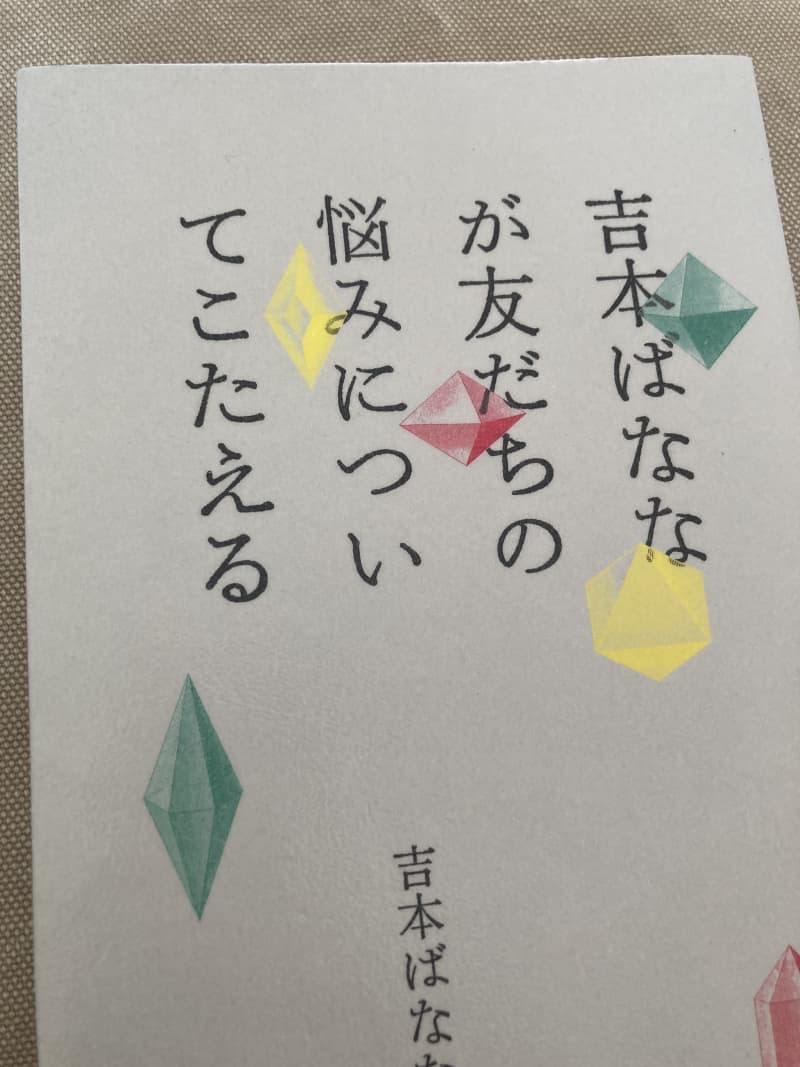 吉本ばなな
が友だちの
悩みについ
てこたえる
吉本ばなな